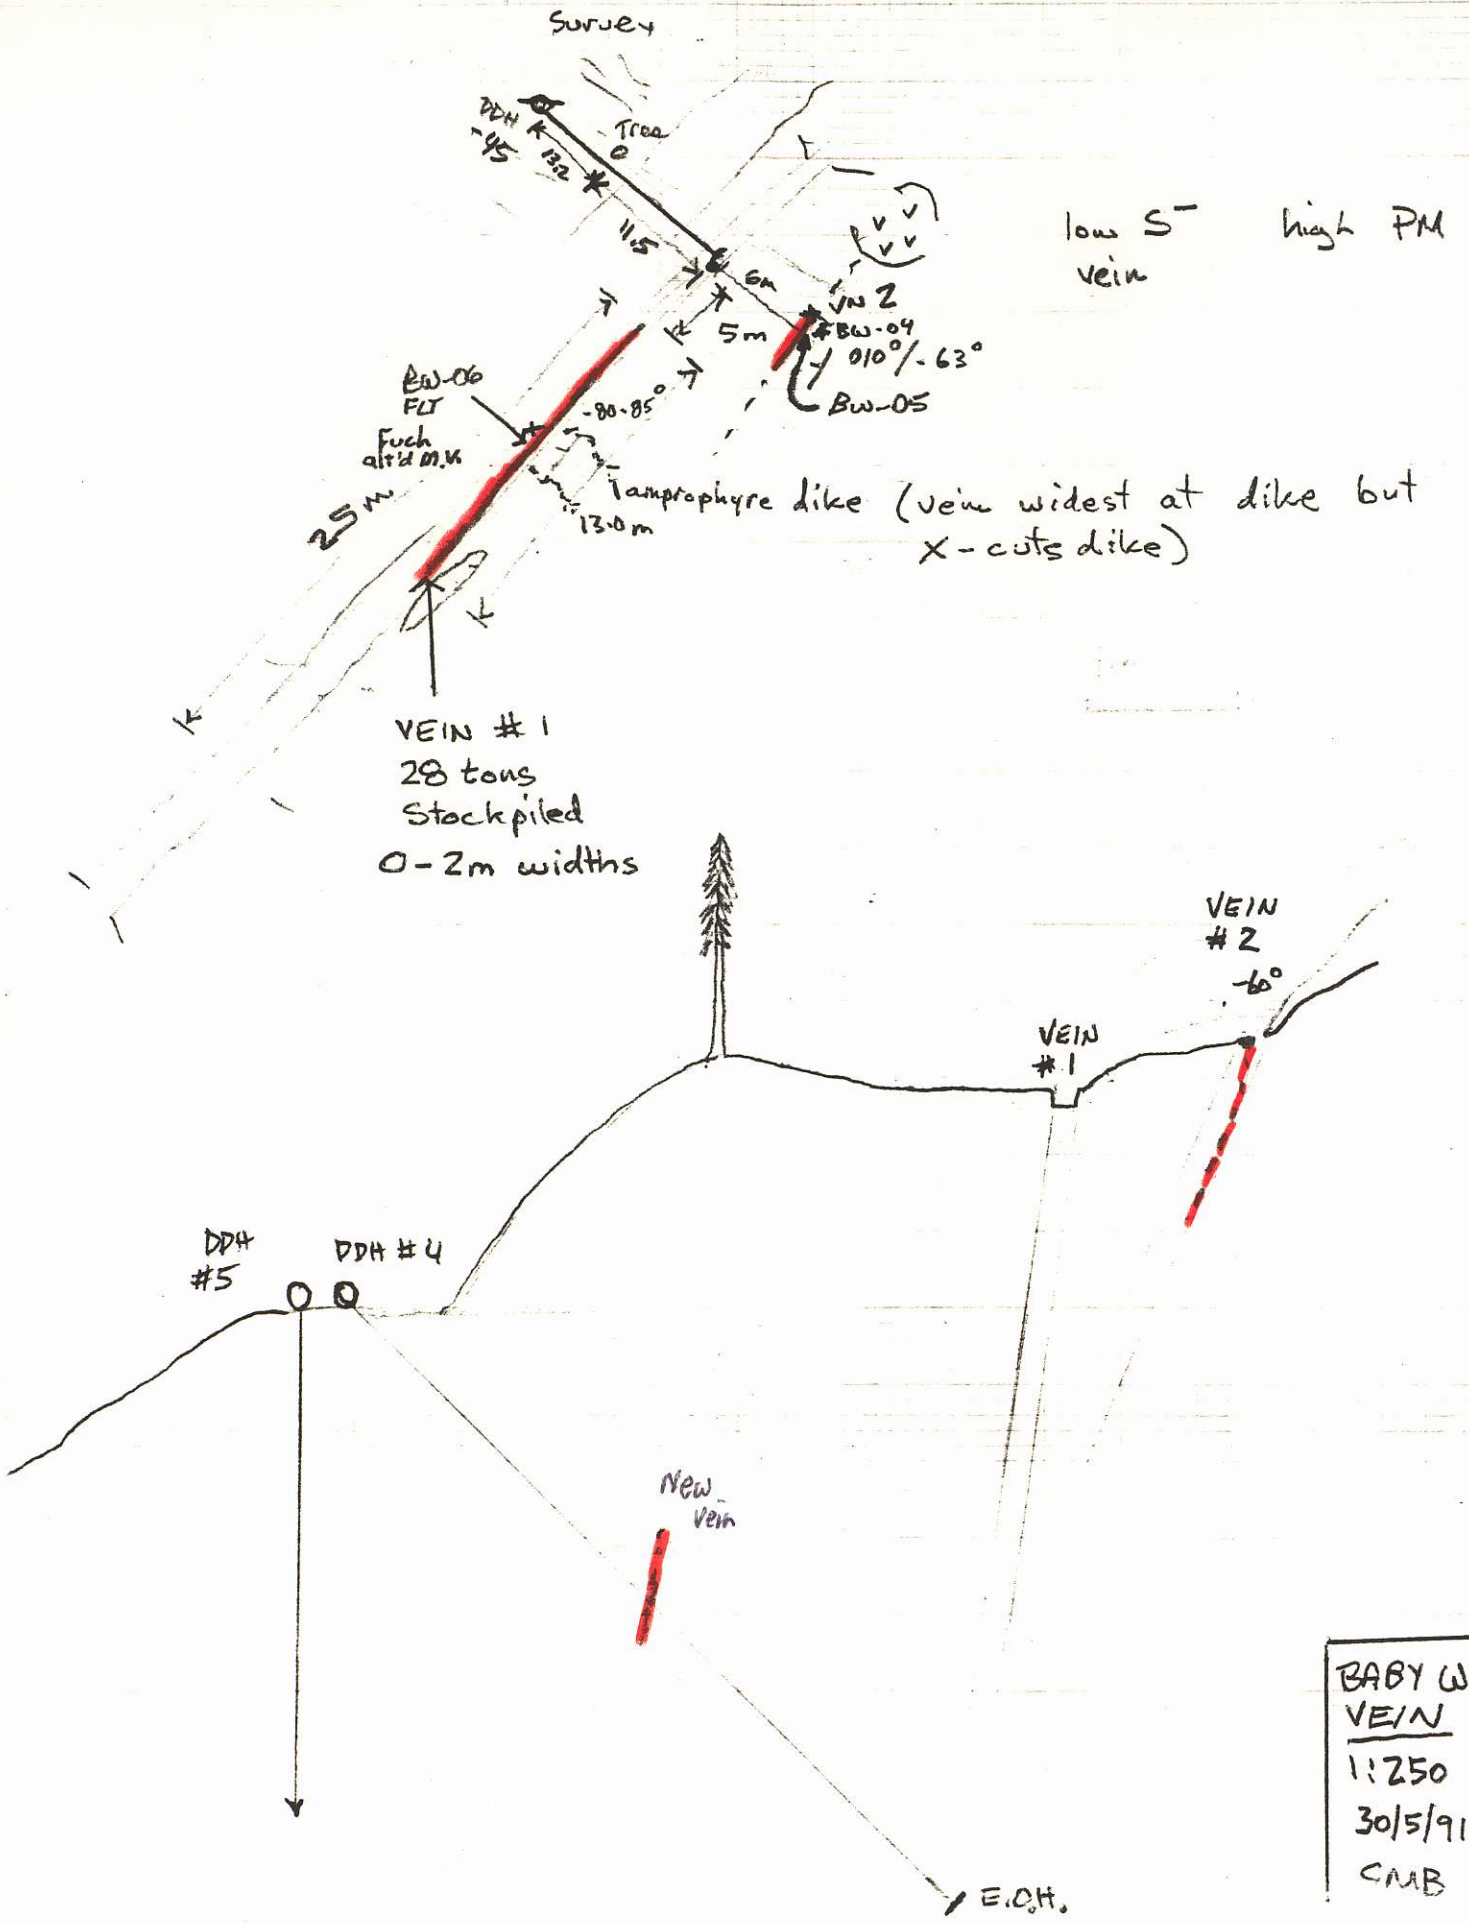 Survey
DDH
-45
13.2
Tree
11.5
6m
5m
VN 2
BW-04
010°/-63°
BW-05
low S⁻ high PM
vein
BW-06
FLT
Fuch
alt'd m.v.
-80-85°
25m
13.0m
Lamprophyre dike (vein widest at dike but
X-cuts dike)
VEIN # 1
28 tons
Stockpiled
0-2m widths
VEIN
# 2
-60°
VEIN
# 1
DDH
#5
DDH #4
New
Vein
E.O.H.
BABY W
VEIN
1:250
30/5/91
CMB